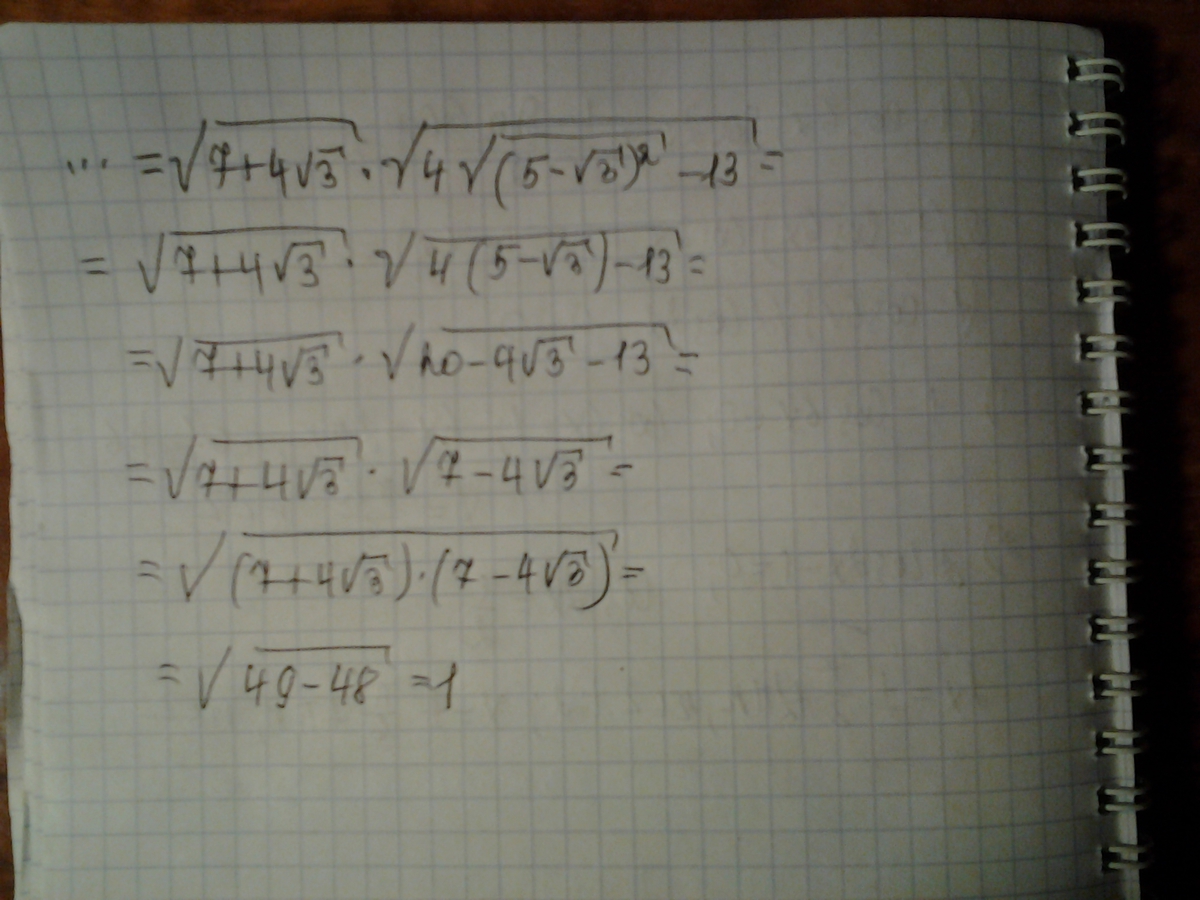 ... = √(7+4√3) · √(4√((5-√3)²) -13) =
= √(7+4√3) · √(4(5-√3)-13) =
= √(7+4√3) · √(20-4√3-13) =
= √(7+4√3) · √(7-4√3) =
= √((7+4√3)·(7-4√3)) =
= √(49-48) = 1